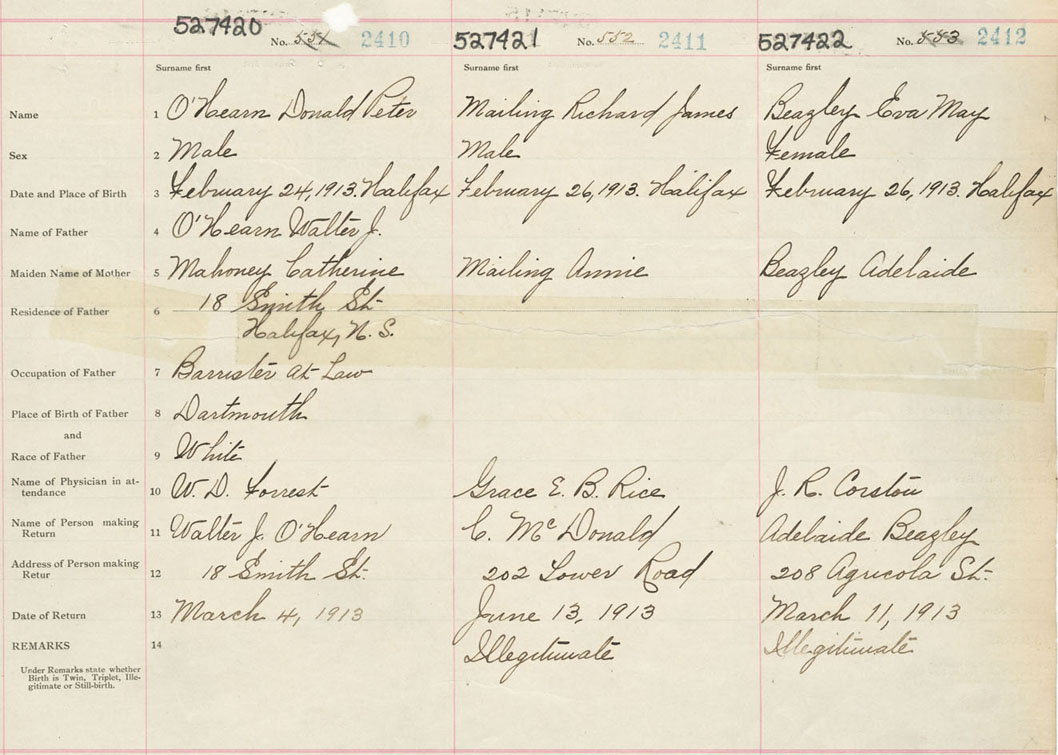 527420 No. 551 2410 527421 No. 552 2411 527422 No. 553 2412
Surname first Surname first Surname first
Name 1 O'Hearn Donald Peter Mailing Richard James Beazley Eva May
Sex 2 Male Male Female
Date and Place of Birth 3 February 24, 1913. Halifax February 26, 1913. Halifax February 26, 1913. Halifax
Name of Father 4 O'Hearn Walter J.
Maiden Name of Mother 5 Mahoney Catherine Mailing Annie Beazley Adelaide
Residence of Father 6 18 Smith St.
Halifax, N. S.
Occupation of Father 7 Barrister at Law
Place of Birth of Father 8 Dartmouth
and
Race of Father 9 White
Name of Physician in at-
tendance 10 W. D. Forrest Grace E. B. Rice J. R. Corston
Name of Person making
Return 11 Walter J. O'Hearn C. McDonald Adelaide Beazley
Address of Person making
Retur 12 18 Smith St. 202 Lower Road 208 Agricola St.
Date of Return 13 March 4, 1913 June 13, 1913 March 11, 1913
REMARKS 14 Illegitimate Illegitimate
Under Remarks state whether
Birth is Twin, Triplet, Ille-
gitimate or Still-birth.